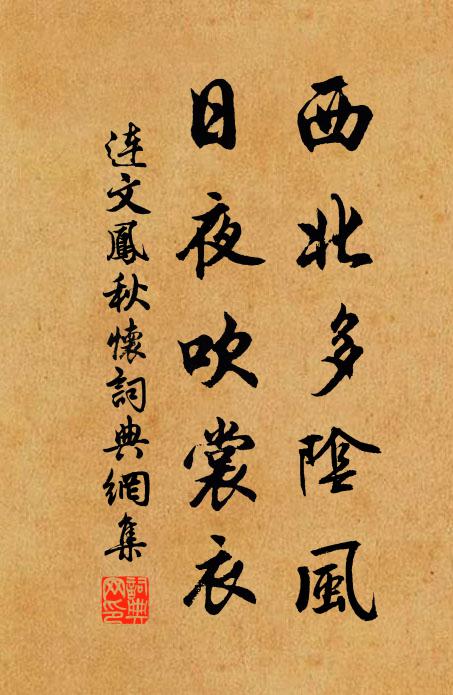 西北多陰風
日夜吹裳衣
連文鳳秋懷詞典網集
詞典網印